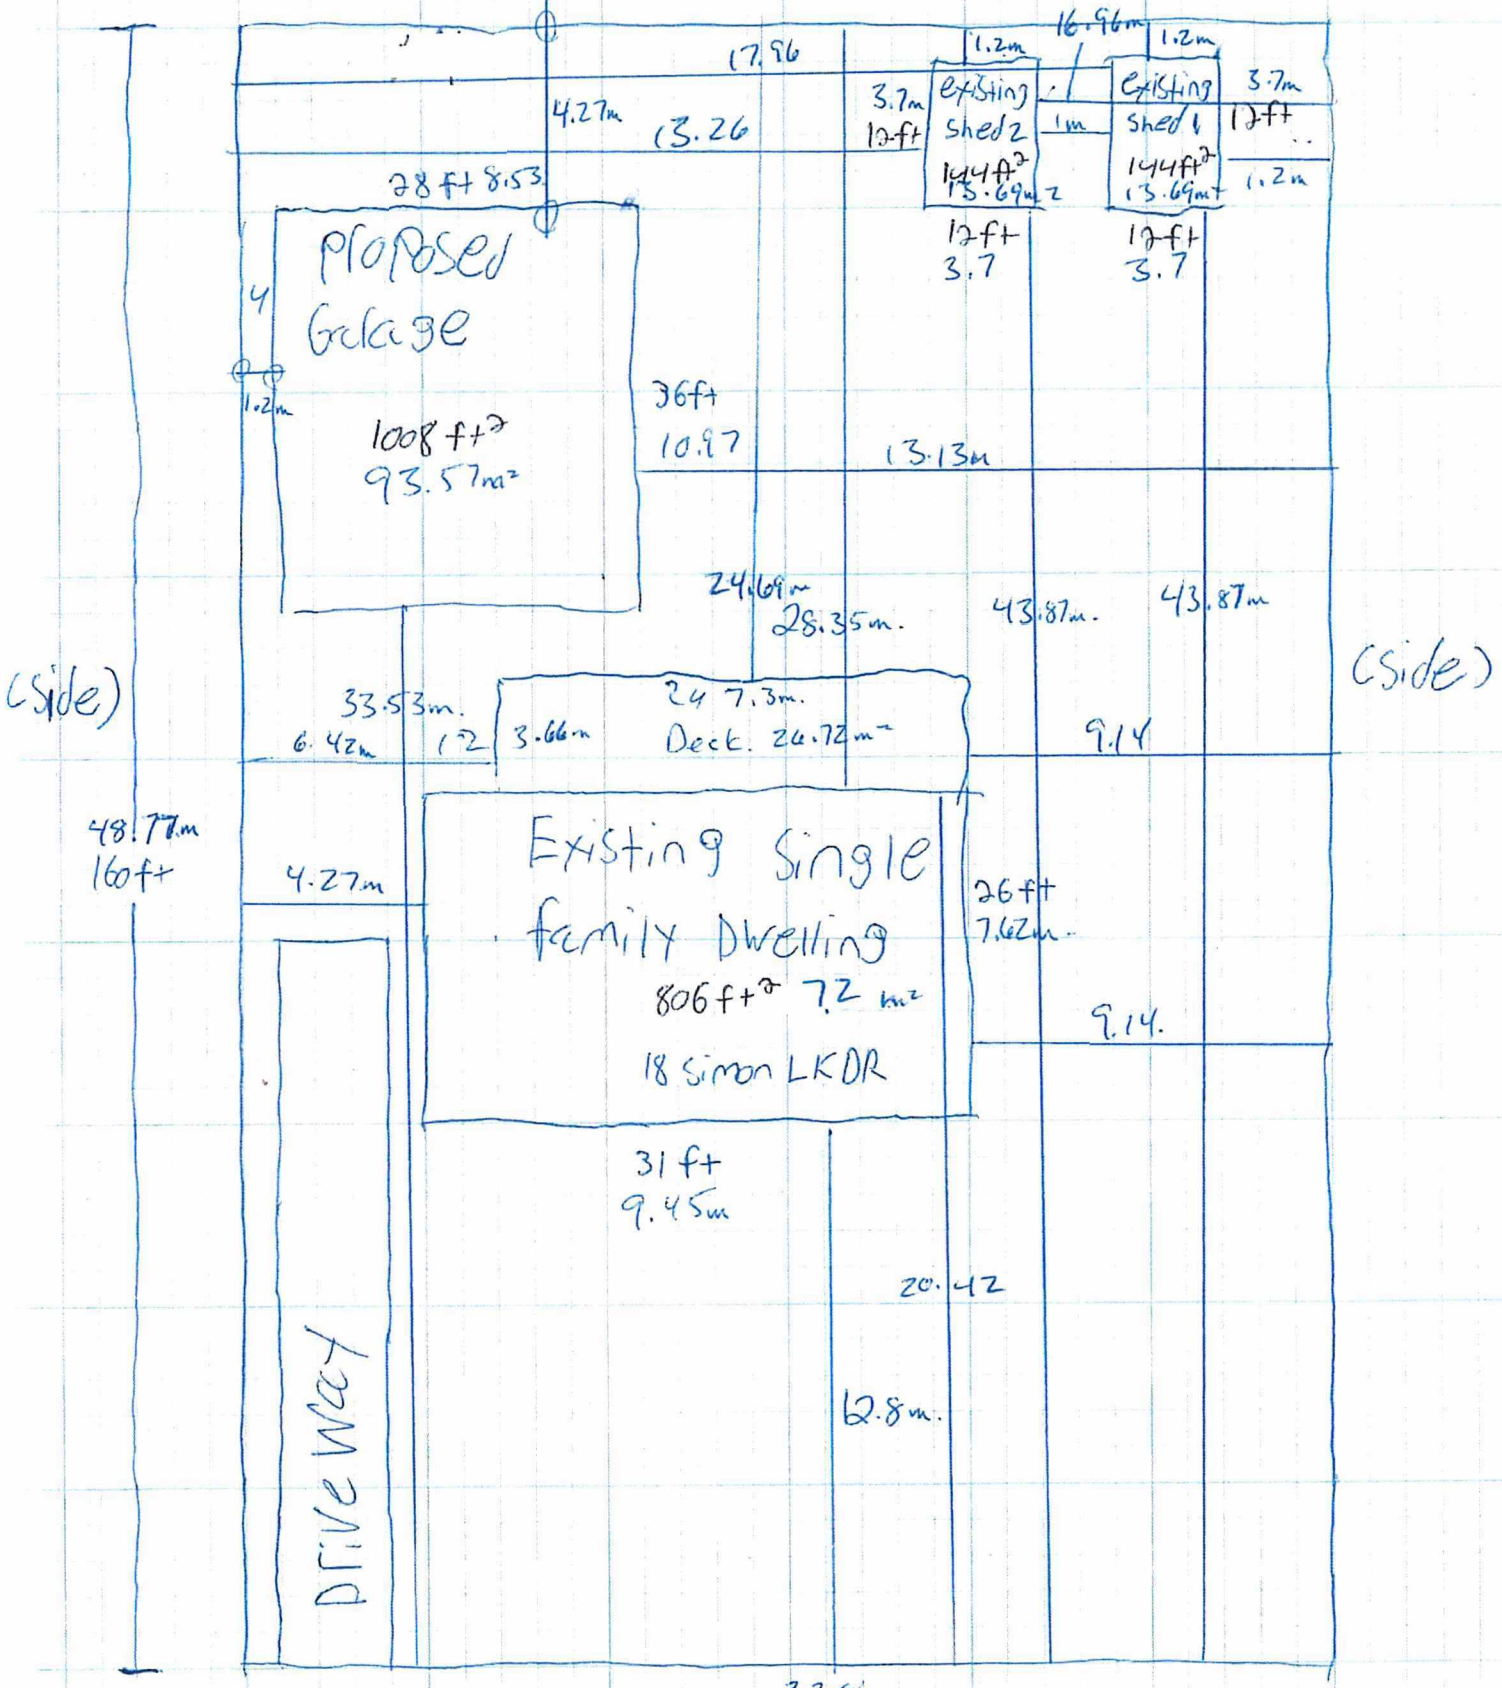 16.96m
1.2m
1.2m
17.96
4.27m
13.26
3.7m
12ft
existing
shed 2
144ft²
13.69m2
1m
existing
shed 1
144ft²
13.69m²
3.7m
12ft
1.2m
28ft 8.53
12ft
3.7
12ft
3.7
Proposed
Garage
4
1.2m
1008 ft²
93.57m²
36ft
10.97
13.13m
24.69m
28.35m.
43.87m.
43.87m
(side)
(side)
33.53m.
6.42m
12
3.66m
24 7.3m.
Deck. 26.72m²
9.14
48.77m
160ft
4.27m
Existing Single
family Dwelling
806ft² 72 m²
18 Simon LKDR
26ft
7.62m.
9.14.
31 ft
9.45m
20.42
12.8m.
Driveway